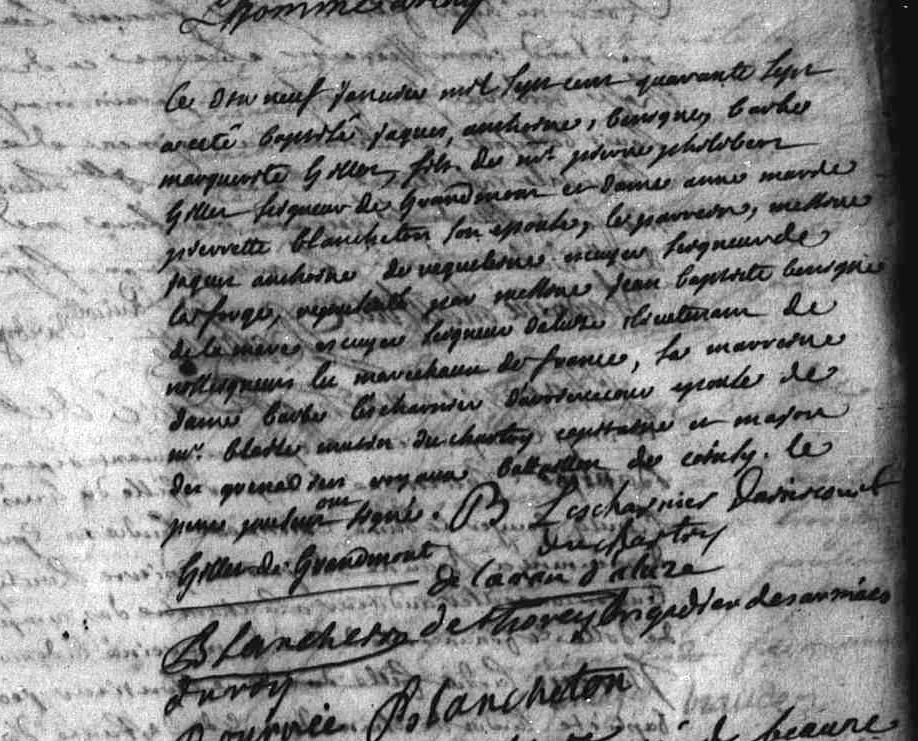 Ce dix neuf janvier mil sept cent quarante sept
a esté baptisé jaques, anthoine, benigne, barbe
marguerite Giller, fils de mr. pierre philibert
Giller seigneur de Grandmont et dame anne marie
pierrette blancheton son epouse, le parrein, messire
jaque anthoine de requeleine ecuyer seigneur de
la forge, representé par messire jean baptiste benigne
de la mare ecuyer seigneur daluze lieutenant de
nosseigneurs les marechaux de france, la marreine
dame barbe Lescharnier épouse de
mr. blaise du chastoy capitaine et major
des grenadiers royaux battaillon de . le
pere ont signé. B Lescharnier
Giller de Grandmont duchastoy
de Lamare d'aluze
Blancheton de Thorey brigadier des armées
du roy
Blancheton
de beaune